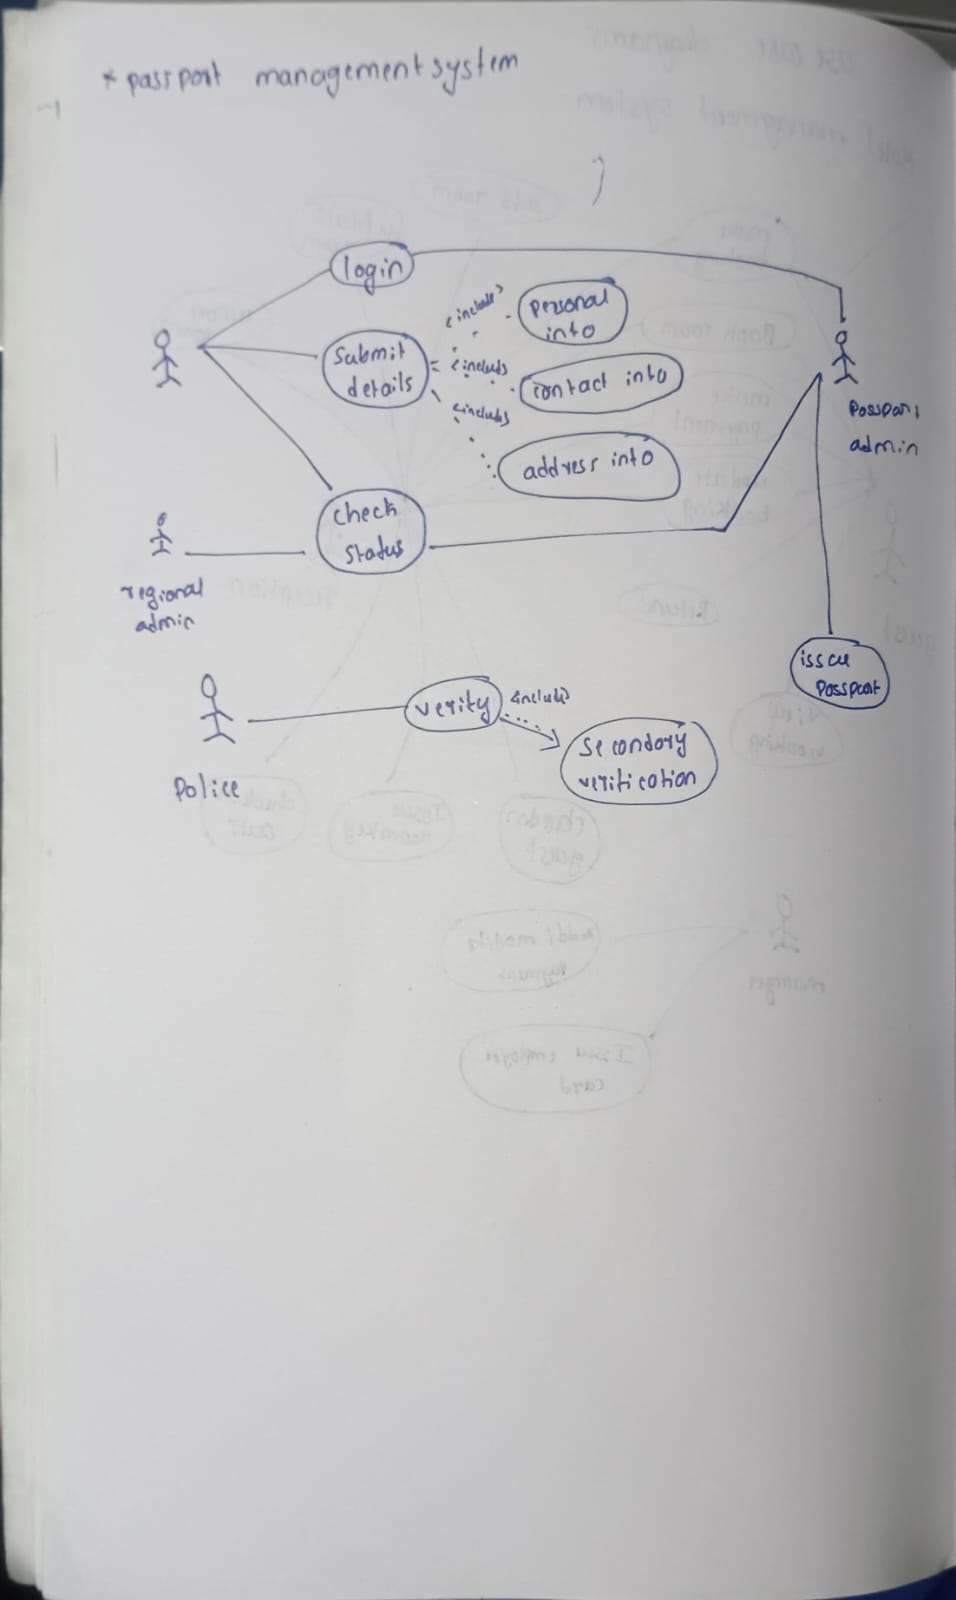 * passport management system
login
<include>
personal
into
submit
details
<includs
contact into
<includs
address into
passport
admin
check
status
regional
admin
issue
passport
verity
<include>
secondory
veritication
police